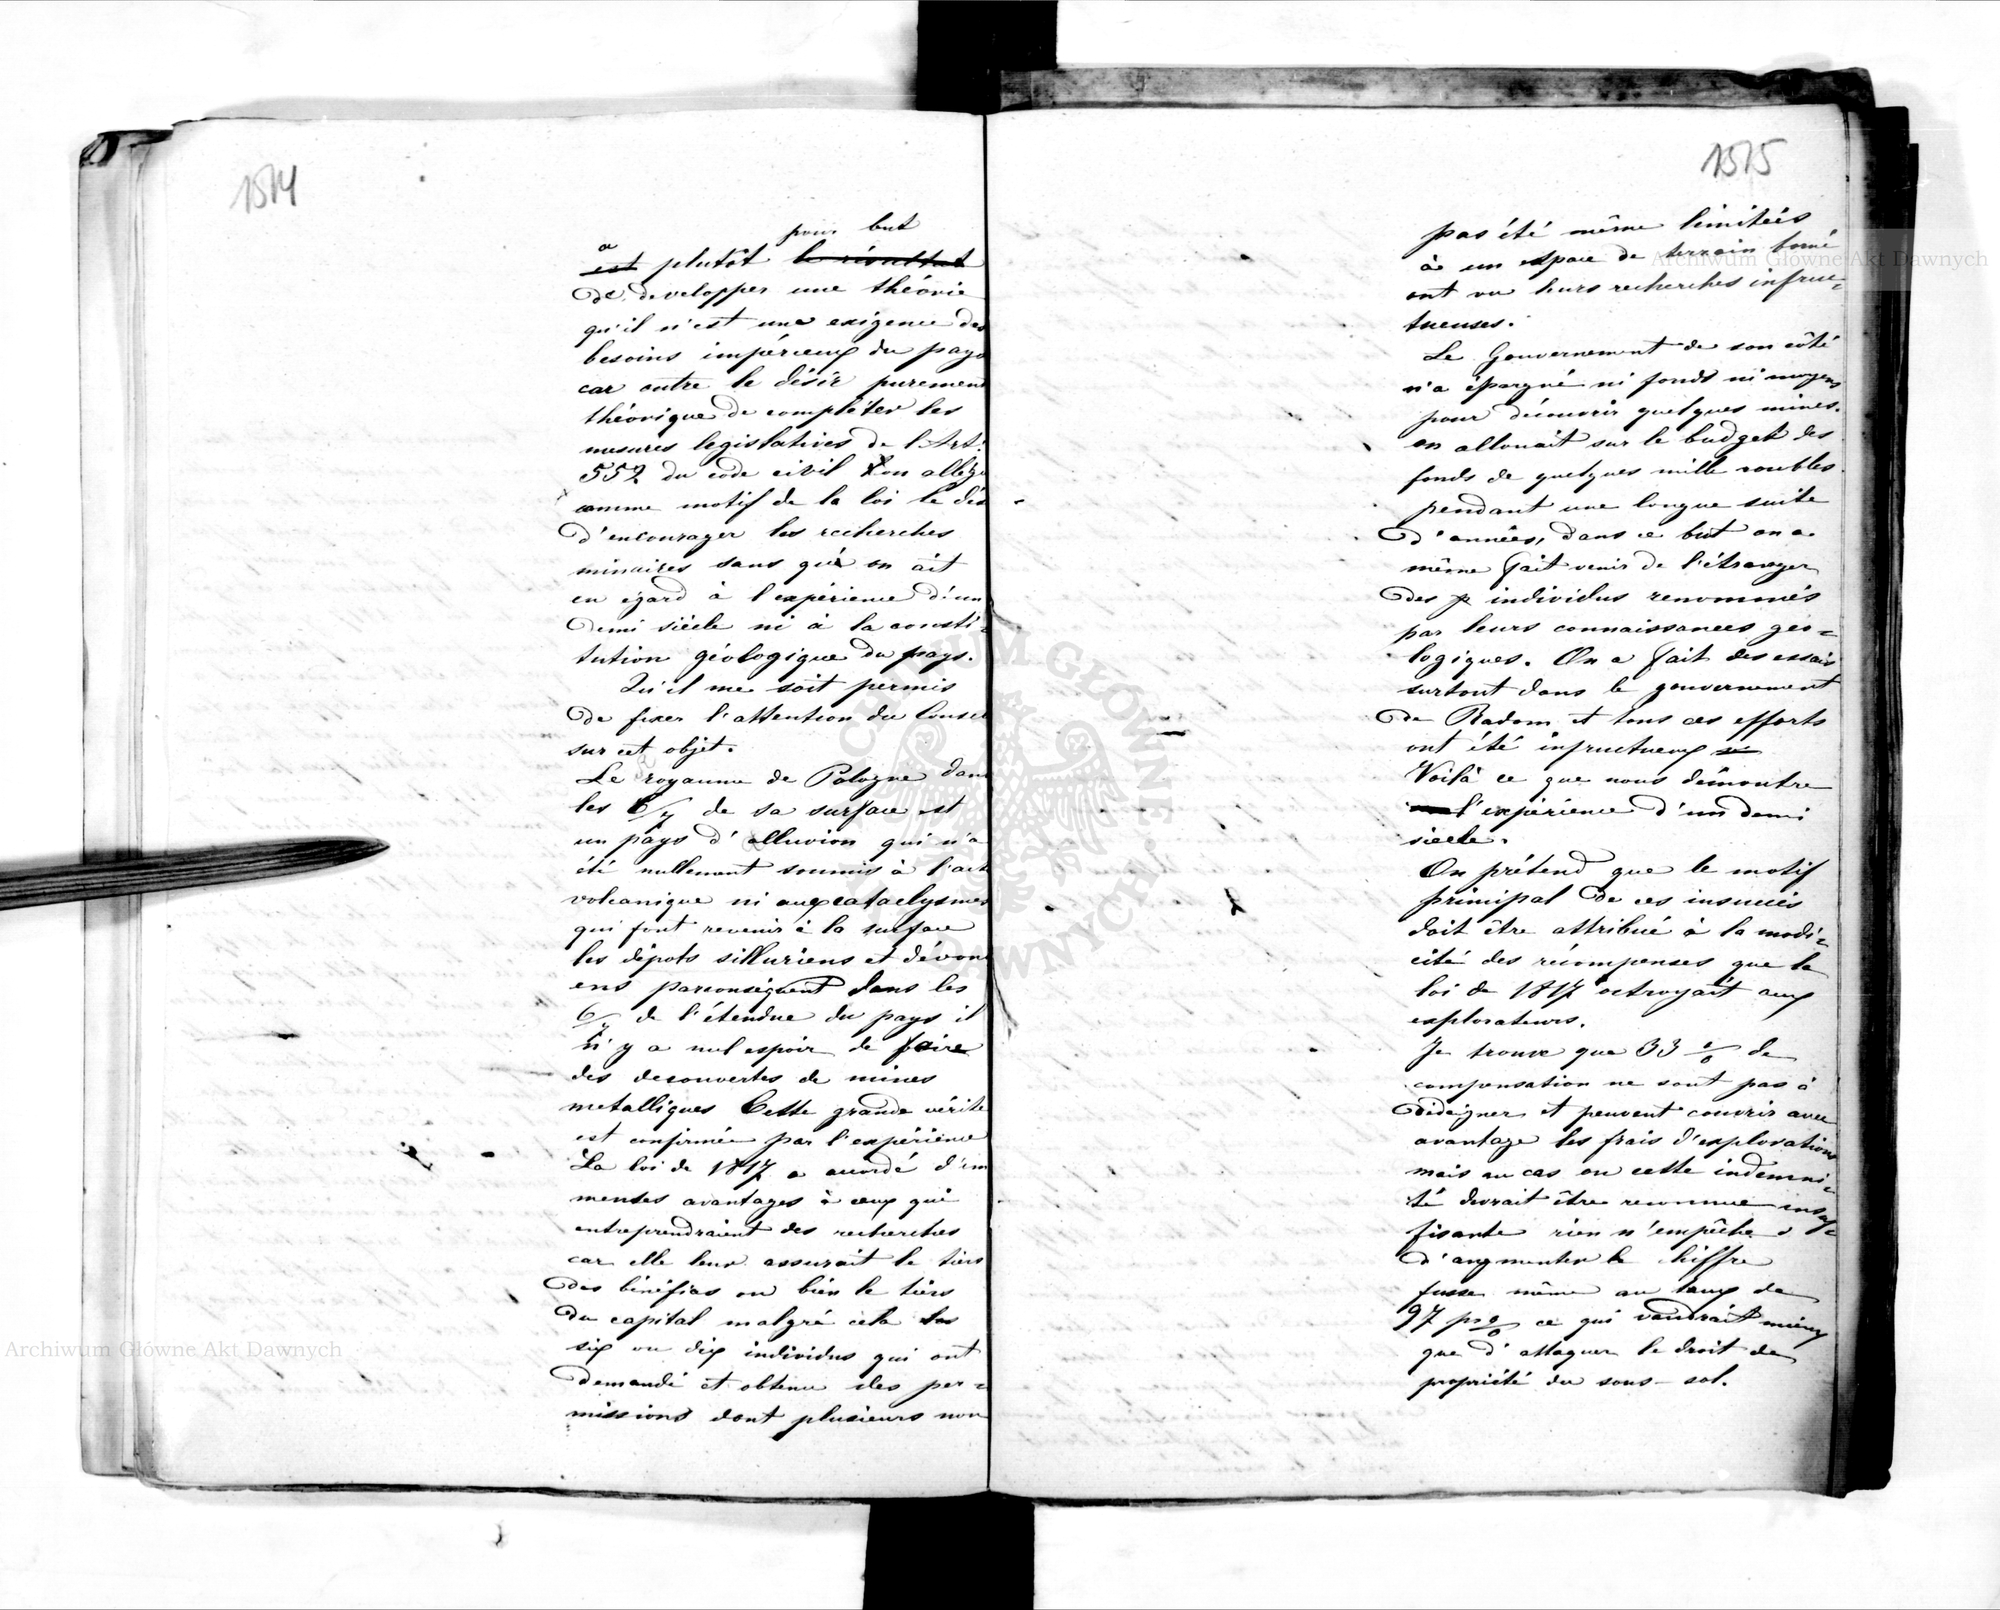 1514
pour but
a
est plutôt le résultat
de developper une théorie
qu'il n'est une exigence des
besoins impérieux du pays
car outre le désir purement
théorique de compléter les
mesures legislatives de l'Art:
552 du code civil l'on allègu
comme motif de la loi le dés
d'encourager les recherches
minaires sans que on ait
eu égard à l'expérience d'un
demi siècle ni à la consti=
tution géologique du pays.
Qu'il me soit permis
de fixer l'attention du Conseil
sur cet objet.
Le royaume de Pologne dans
les 6/7 de sa surface est
un pays d'alluvion qui n'a
été nullement soumis à l'act
volcanique ni aux cataclysmes
qui font revenir à la surface
les dépots silluriens et dévoni
ens parconséquent dans les
6/7 de l'étendue du pays il
n'y a nul espoir de faire
des decouvertes de mines
metalliques Cette grande vérité
est confirmée par l'expérience
La loi de 1817 a accordé d'im
menses avantages à ceux qui
entreprendraient des recherches
car elle leur assurait le tiers
des bénéfices ou bien le tiers
du capital malgré cela les
six ou dix individus qui ont
demandé et obtenu des per=
missions dont plusieurs non
1515
pas été même limitées
à un espace de terrain borné
ont vu leurs recherches infruc=
tueuses.
Le Gouvernement de son côté
n'a épargné ni fonds ni moyens
pour découvrir quelques mines.
on allouait sur le budget des
fonds de quelques mille roubles
pendant une longue suite
d'années, dans ce but on a
même fait venir de l'étranger
des p individus renommés
par leurs connaissances géo=
logiques. On a fait des essais
surtout dans le gouvernement
de Radom et tous ces efforts
ont été infructueux
Voilà ce que nous démontre
l'expérience d'un demi
siècle.
On prétend que le motif
principal de ces insuccès
doit être attribué à la modi=
cité des récompenses que la
loi de 1817 octroyait aux
explorateurs.
Je trouve que 33 % de
compensation ne sont pas à
dédaigner et peuvent couvrir avec
avantage les frais d'explorations
mais au cas ou cette indemni=
té devrait être reconnue insuf=
fisante rien n'empêche
d'augmenter le chiffre
fusse même au taux de
97 p% ce qui vaudrait mieux
que d'attaquer le droit de
propriété du sous-sol.
Archiwum Główne Akt Dawnych
Archiwum Główne Akt Dawnych
ARCHIWUM GŁÓWNE AKT DAWNYCH